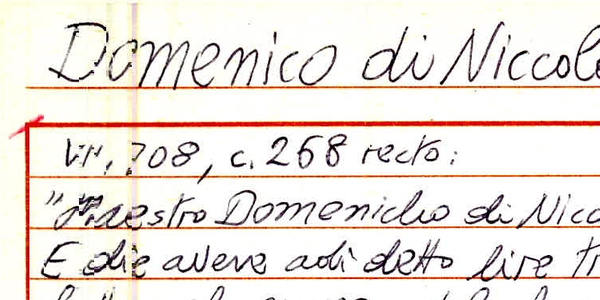 Domenico di Niccolò
708, c. 268 recto:
"Maestro Domenicho di Nico
E die avere adì detto lire tr